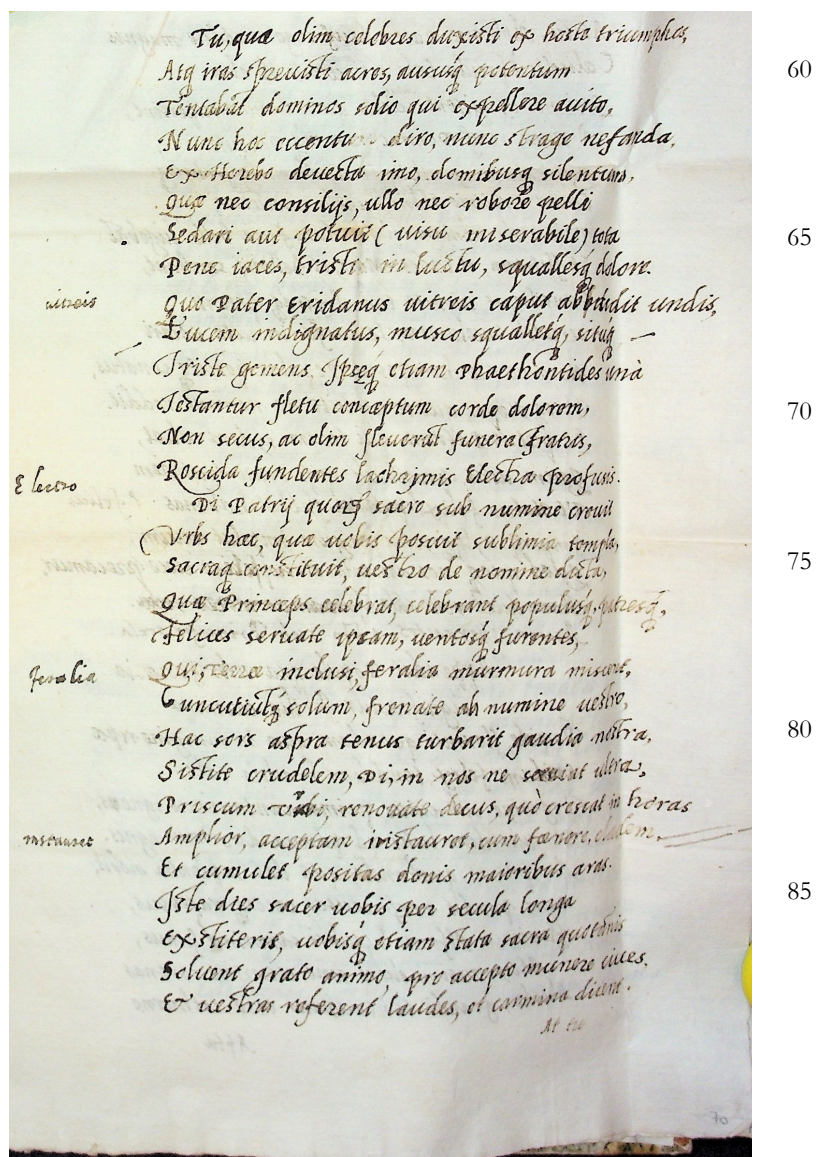 Tu, quæ olim celebres duxisti ex hoste triumphos,
Atq iras spreuisti acres, aususq potentum 60
Tentabāt dominos solio qui expellere auito,
Nunc hoc euentu diro, nunc strage nefanda,
Ex Herebo deuecta imo, domibusq silentum,
Quæ nec consilijs, ullo nec robore pelli
Sedari aut potuit (uisu miserabile) tota 65
Pene iaces, tristi in luctu, squallesq dolore.
uitreis Quo Pater Eridanus uitreis caput abdidit undis,
Lucem indignatus, musco squalletq, situq
Triste gemens. Ipseq etiam Phaethontides unà
Testantur fletu concæptum corde dolorem, 70
Non secus, ac olim fleuerūt funera fratris,
Electro Roscida fundentes lachrymis Electra profusis.
Di Patrij quorq sacro sub numine creuit
Vrbs hæc, quæ uobis posuit sublimia templa,
Sacraq constituit, uestro de nomine dicta, 75
Quæ Princæps celebrat, celebrant populusq, patresq,
Felices seruate ipsam, uentosq furentes,
feralia Qui, terræ inclusi, feralia murmura miscent,
Cuncutiūtq solum, frenate ab numine uestro,
Hac sors aspra tenus turbarit gaudia nostra, 80
Sistite crudelem, Di, in nos ne sæuiat ultra,
Priscum Vrbi, renouate decus, quò crescat in horas
instauret Amplior, acceptam instauret, cum fænore, cladem.
Et cumulet positas donis maioribus aras.
Iste dies sacer uobis per secula longa 85
Exstiterit, uobisq etiam stata sacra quotānis
Soluent grato animo, pro accepto munere ciues.
Et uestras referent laudes, et carmina dicent.
At
70